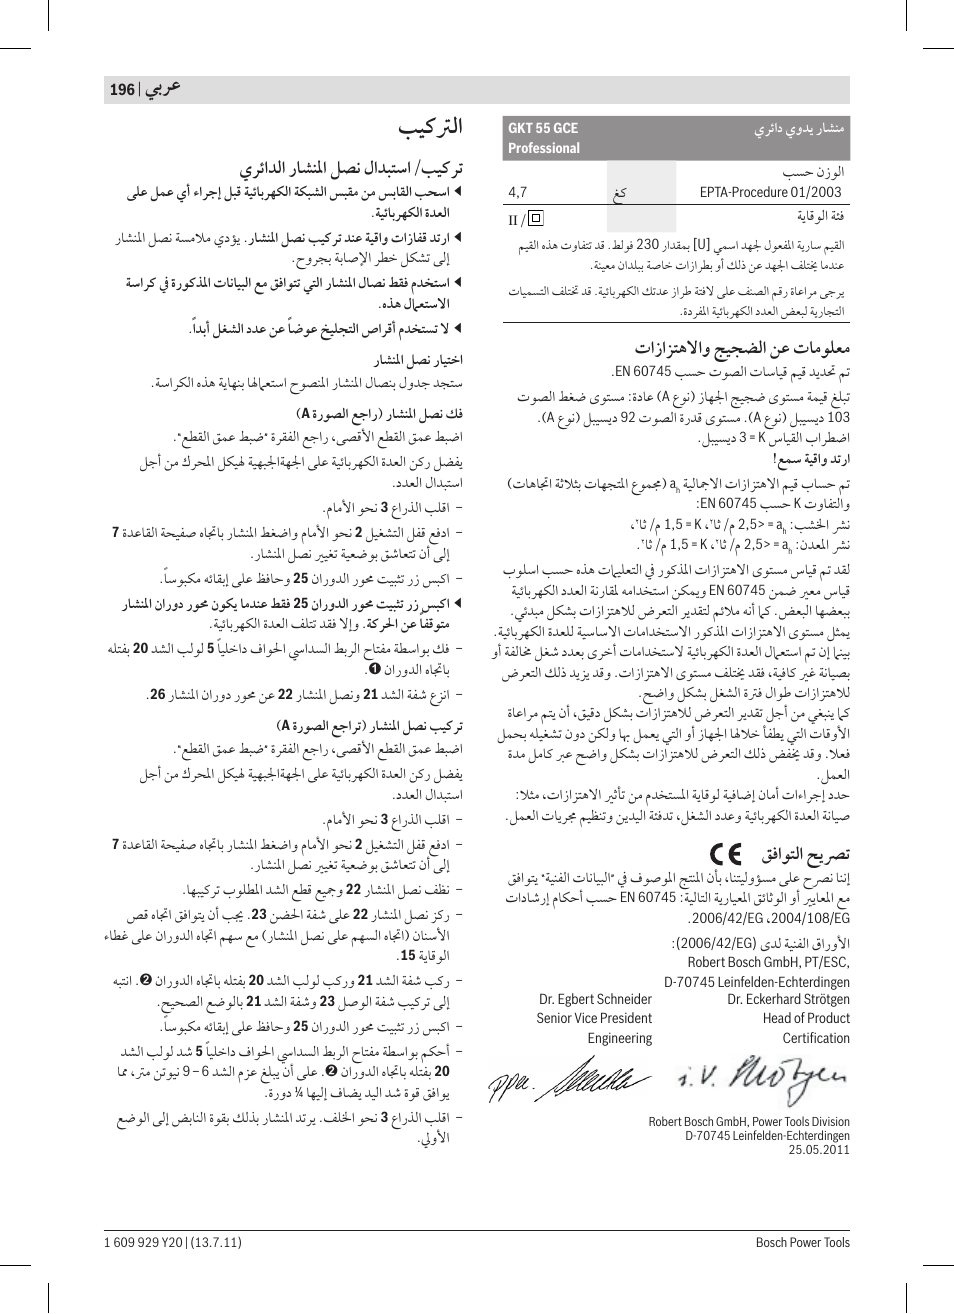 عربي | 196
GKT 55 GCE منشار يدوي دائري
Professional
الوزن حسب
EPTA-Procedure 01/2003 كغ 4,7
فئة الوقاية II /
القيم سارية المفعول لجهد اسمي [U] بمقدار 230 فولط. قد تتفاوت هذه القيم
عندما يختلف الجهد عن ذلك أو بطرازات خاصة ببلدان معينة.
يرجى مراعاة رقم الصنف على لافتة طراز عدتك الكهربائية. قد تختلف التسميات
التجارية لبعض العدد الكهربائية المفردة.
معلومات عن الضجيج والاهتزازات
تم تحديد قيم قياسات الصوت حسب EN 60745.
تبلغ قيمة مستوى ضجيج الجهاز (نوع A) عادة: مستوى ضغط الصوت
103 ديسيبل (نوع A). مستوى قدرة الصوت 92 ديسيبل (نوع A).
اضطراب القياس K = 3 ديسيبل.
ارتد واقية سمع!
تم حساب قيم الاهتزازات الاجمالية ah (مجموع المتجهات بثلاثة اتجاهات)
والتفاوت K حسب EN 60745:
نشر الخشب: ah = <2,5 م/ ثا٢، K = 1,5 م/ ثا٢،
نشر المعدن: ah = <2,5 م/ ثا٢، K = 1,5 م/ ثا٢.
لقد تم قياس مستوى الاهتزازات المذكور في التعليمات هذه حسب اسلوب
قياس معير ضمن EN 60745 ويمكن استخدامه لمقارنة العدد الكهربائية
ببعضها البعض. كما أنه ملائم لتقدير التعرض للاهتزازات بشكل مبدئي.
يمثل مستوى الاهتزازات المذكور الاستخدامات الاساسية للعدة الكهربائية.
بينما إن تم استعمال العدة الكهربائية لاستخدامات أخرى بعدد شغل مخالفة أو
بصيانة غير كافية، فقد يختلف مستوى الاهتزازات. وقد يزيد ذلك التعرض
للاهتزازات طوال فترة الشغل بشكل واضح.
كما ينبغي من أجل تقدير التعرض للاهتزازات بشكل دقيق، أن يتم مراعاة
الأوقات التي يطفأ خلالها الجهاز أو التي يعمل بها ولكن دون تشغيله بحمل
فعلا. وقد يخفض ذلك التعرض للاهتزازات بشكل واضح عبر كامل مدة
العمل.
حدد إجراءات أمان إضافية لوقاية المستخدم من تأثير الاهتزازات، مثلا:
صيانة العدة الكهربائية وعدد الشغل، تدفئة اليدين وتنظيم مجريات العمل.
تصريح التوافق CE
إننا نصرح على مسؤوليتنا، بأن المنتج الموصوف في "البيانات الفنية" يتوافق
مع المعايير أو الوثائق المعيارية التالية: EN 60745 حسب أحكام إرشادات
2006/42/EG ،2004/108/EG.
الأوراق الفنية لدى (2006/42/EG):
Robert Bosch GmbH, PT/ESC,
D-70745 Leinfelden-Echterdingen
Dr. Egbert Schneider Dr. Eckerhard Strötgen
Senior Vice President Head of Product
Engineering Certification
ppa. i.V. Strötgen
Robert Bosch GmbH, Power Tools Division
D-70745 Leinfelden-Echterdingen
25.05.2011
التركيب
تركيب/ استبدال نصل المنشار الدائري
◀ اسحب القابس من مقبس الشبكة الكهربائية قبل إجراء أي عمل على
العدة الكهربائية.
◀ ارتد قفازات واقية عند تركيب نصل المنشار. يؤدي ملامسة نصل المنشار
إلى تشكل خطر الإصابة بجروح.
◀ استخدم فقط نصال المنشار التي تتوافق مع البيانات المذكورة في كراسة
الاستعمال هذه.
◀ لا تستخدم أقراص التجليخ عوضاً عن عدد الشغل أبداً.
اختيار نصل المنشار
ستجد جدول بنصال المنشار المنصوح استعمالها بنهاية هذه الكراسة.
فك نصل المنشار (راجع الصورة A)
اضبط عمق القطع الأقصى، راجع الفقرة "ضبط عمق القطع".
يفضل ركن العدة الكهربائية على الجهةالجبهية لهيكل المحرك من أجل
استبدال العدد.
– اقلب الذراع 3 نحو الأمام.
– ادفع قفل التشغيل 2 نحو الأمام واضغط المنشار باتجاه صفيحة القاعدة 7
إلى أن تتعاشق بوضعية تغيير نصل المنشار.
– اكبس زر تثبيت محور الدوران 25 وحافظ على إبقائه مكبوساً.
◀ اكبس زر تثبيت محور الدوران 25 فقط عندما يكون محور دوران المنشار
متوقفاً عن الحركة. وإلا فقد تتلف العدة الكهربائية.
– فك بواسطة مفتاح الربط السداسي الحواف داخلياً 5 لولب الشد 20 بفتله
باتجاه الدوران ❶.
– انزع شفة الشد 21 ونصل المنشار 22 عن محور دوران المنشار 26.
تركيب نصل المنشار (تراجع الصورة A)
اضبط عمق القطع الأقصى، راجع الفقرة "ضبط عمق القطع".
يفضل ركن العدة الكهربائية على الجهةالجبهية لهيكل المحرك من أجل
استبدال العدد.
– اقلب الذراع 3 نحو الأمام.
– ادفع قفل التشغيل 2 نحو الأمام واضغط المنشار باتجاه صفيحة القاعدة 7
إلى أن تتعاشق بوضعية تغيير نصل المنشار.
– نظف نصل المنشار 22 وجميع قطع الشد المطلوب تركيبها.
– ركز نصل المنشار 22 على شفة الحضن 23. يجب أن يتوافق اتجاه قص
الأسنان (اتجاه السهم على نصل المنشار) مع سهم اتجاه الدوران على غطاء
الوقاية 15.
– ركب شفة الشد 21 وركب لولب الشد 20 بفتله باتجاه الدوران ❷. انتبه
إلى تركيب شفة الوصل 23 وشفة الشد 21 بالوضع الصحيح.
– اكبس زر تثبيت محور الدوران 25 وحافظ على إبقائه مكبوساً.
– أحكم بواسطة مفتاح الربط السداسي الحواف داخلياً 5 شد لولب الشد
20 بفتله باتجاه الدوران ❷. على أن يبلغ عزم الشد 6 – 9 نيوتن متر، مما
يوافق قوة شد اليد يضاف إليها ¼ دورة.
– اقلب الذراع 3 نحو الخلف. يرتد المنشار بذلك بقوة النابض إلى الوضع
الأولي.
1 609 929 Y20 | (13.7.11) Bosch Power Tools